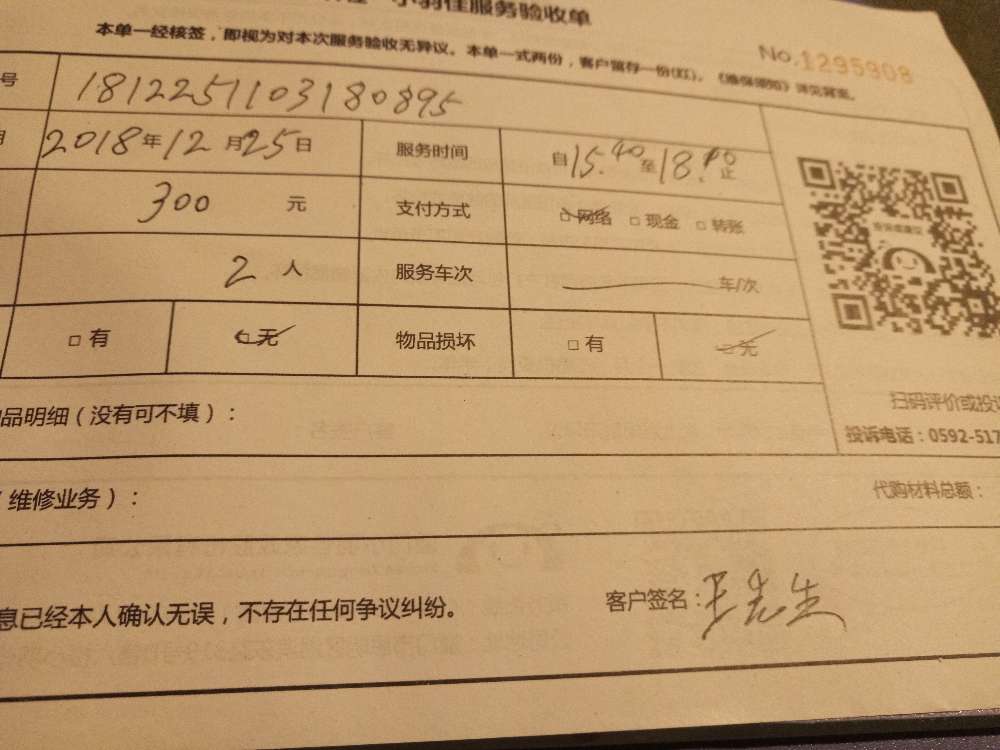 小羽佳服务验收单
本单一经核签，即视为对本次服务验收无异议。本单一式两份，客户留存一份(红)。《维保须知》详见背面。
No.1295908
号 1812251103180895
2018年12月25日 服务时间 自15.40至18.40止
300 元 支付方式 □网络 □现金 □转账
2 人 服务车次 车/次
□有 □无 物品损坏 □有 □无
扫码评价或投
品明细（没有可不填）：
投诉电话：0592-517
维修业务）：
代购材料总额：
息已经本人确认无误，不存在任何争议纠纷。
客户签名：王先生